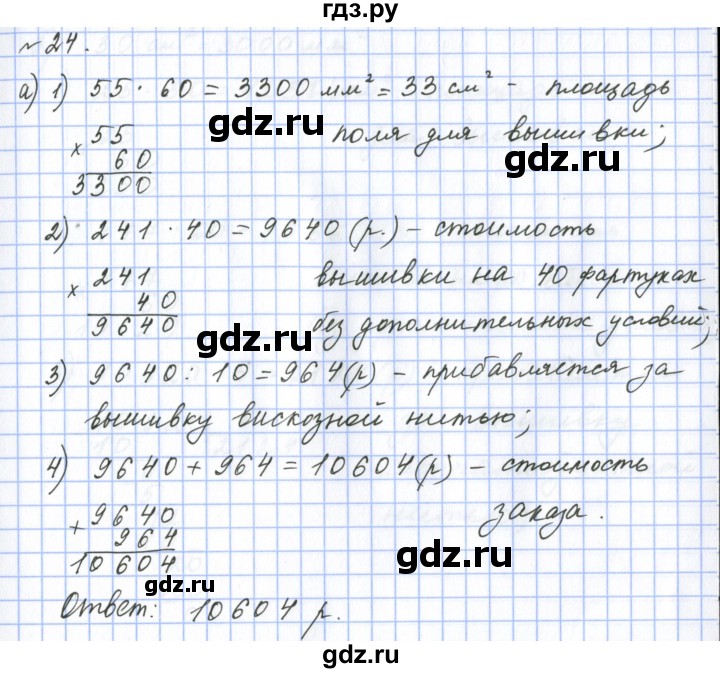 гдз.ру
№ 24.
а) 1) 55 · 60 = 3300 мм² = 33 см² - площадь
поля для вышивки;
gdz.ru
× 55
60
3300
2) 241 · 40 = 9640 (р.) - стоимость
вышивки на 40 фартуках
без дополнительных условий;
× 241
40
9640
gdz.ru
gdz.ru
3) 9640 : 10 = 964 (р) - прибавляется за
вышивку вискозной нитью;
4) 9640 + 964 = 10604 (р) - стоимость
заказа.
+ 9640
964
10604
gdz.ru
gdz.ru
Ответ: 10604 р.
gdz.ru